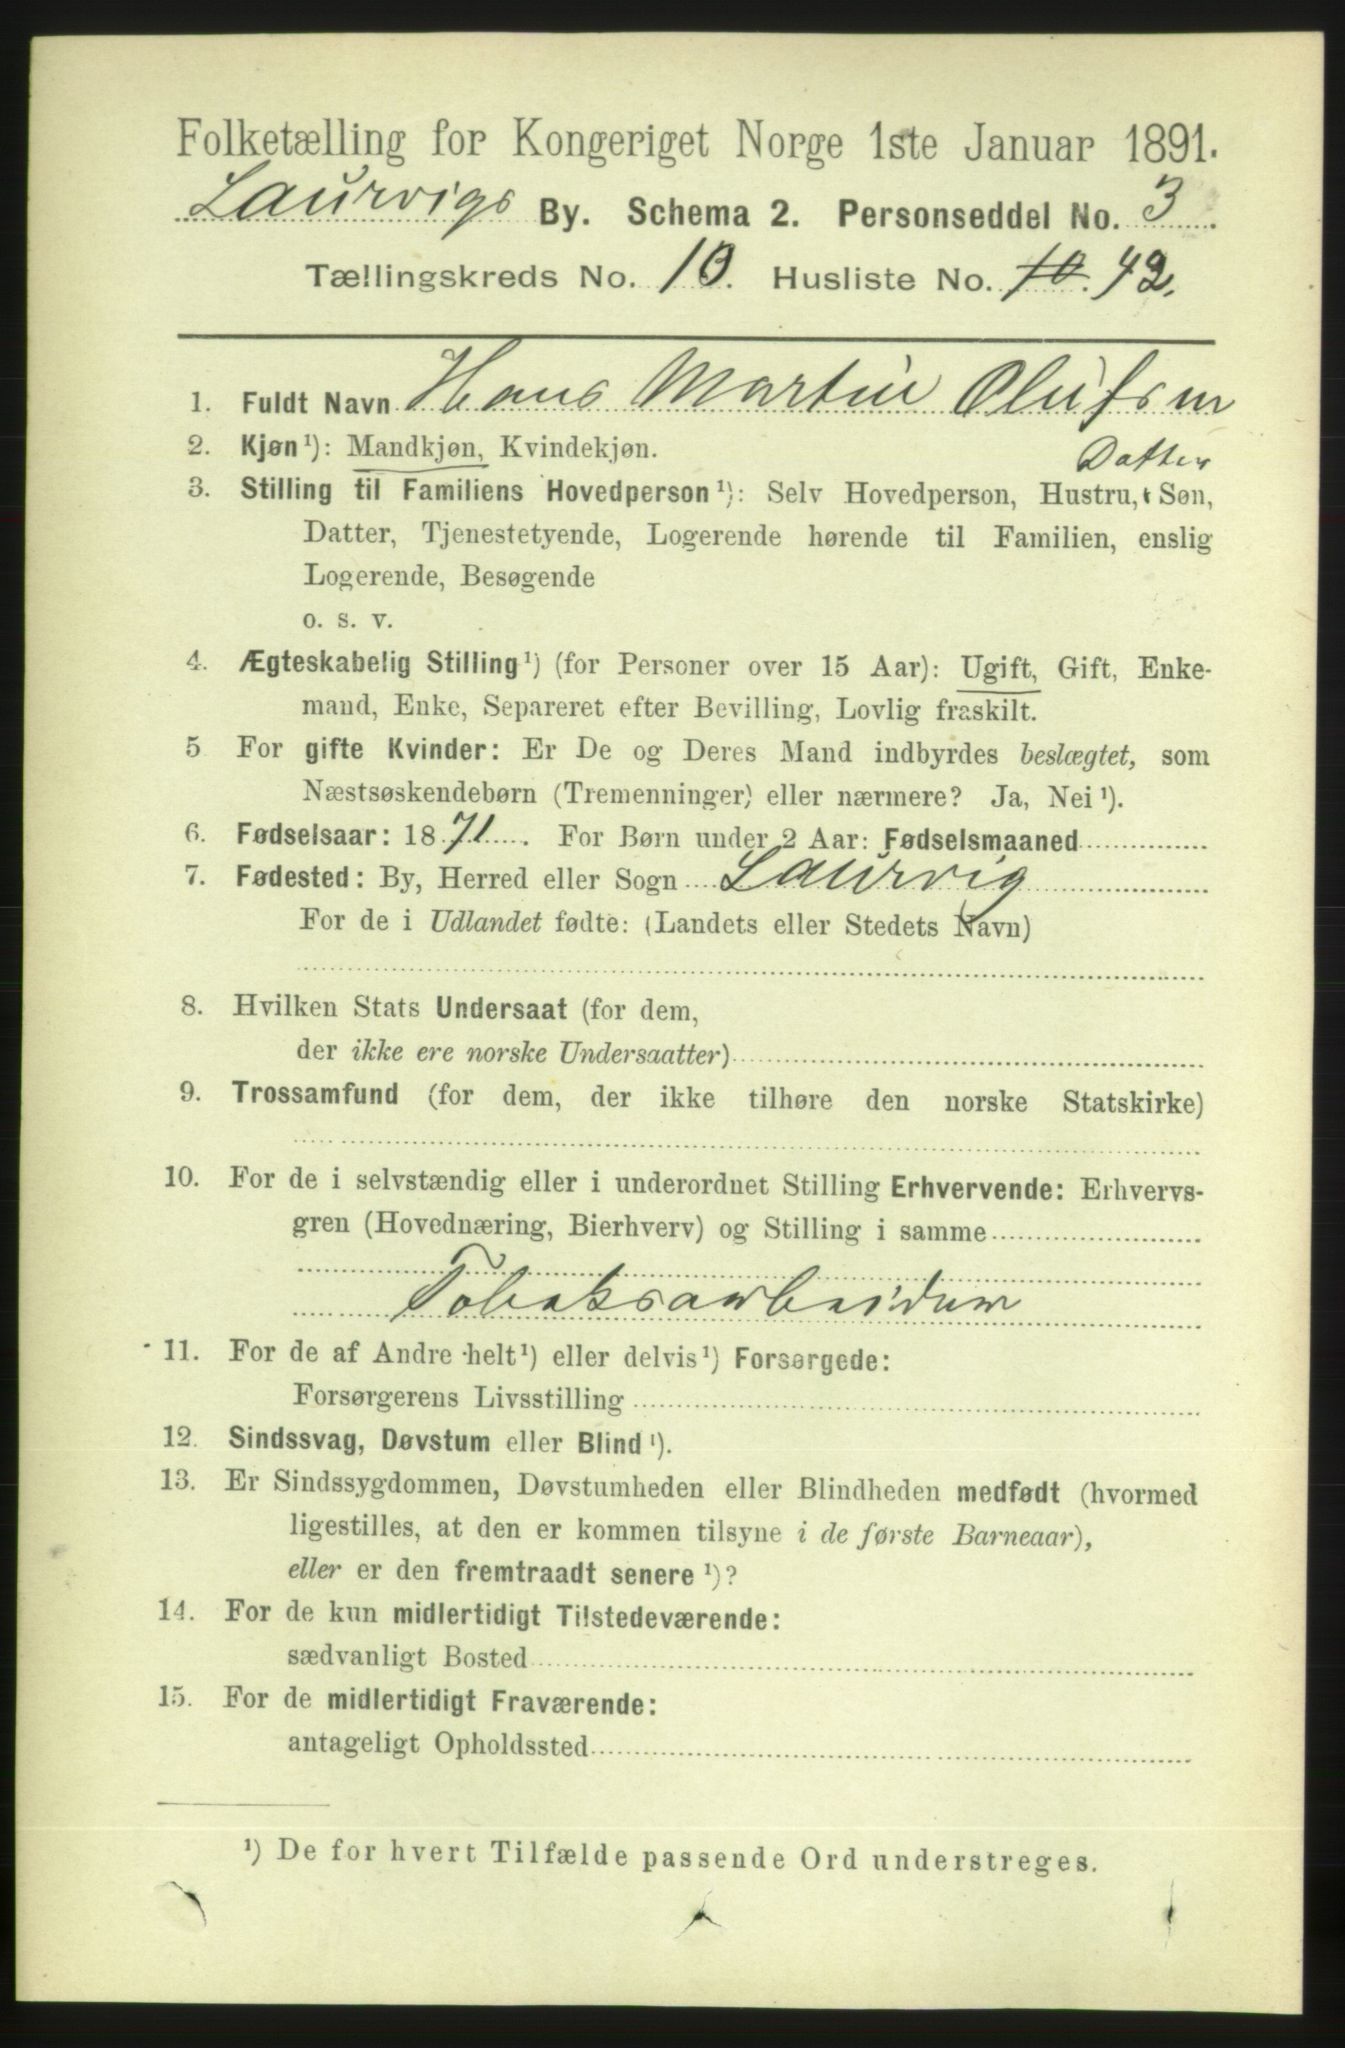 Folketælling for Kongeriget Norge 1ste Januar 1891.
Laurvigs By. Schema 2. Personseddel No. 3.
Tællingskreds No. 10. Husliste No. 10. 42.
1. Fuldt Navn Hans Martin Olufsen
2. Kjøn¹): Mandkjøn, Kvindekjøn.
Datters
3. Stilling til Familiens Hovedperson¹): Selv Hovedperson, Hustru, Søn,
Datter, Tjenestetyende, Logerende hørende til Familien, enslig
Logerende, Besøgende
o. s. v.
4. Ægteskabelig Stilling¹) (for Personer over 15 Aar): Ugift, Gift, Enke-
mand, Enke, Separeret efter Bevilling, Lovlig fraskilt.
5 For gifte Kvinder: Er De og Deres Mand indbyrdes beslægtet, som
Næstsøskendebørn (Tremenninger) eller nærmere? Ja, Nei¹).
6. Fødselsaar: 1871. For Børn under 2 Aar: Fødselsmaaned
7. Fødested: By, Herred eller Sogn Laurvig
For de i Udlandet fødte: (Landets eller Stedets Navn)
8. Hvilken Stats Undersaat (for dem,
der ikke ere norske Undersaatter)
9. Trossamfund (for dem, der ikke tilhøre den norske Statskirke)
10. For de i selvstændig eller i underordnet Stilling Erhvervende: Erhvervs-
gren (Hovednæring, Bierhverv) og Stilling i samme
Tobaksarbeider
11. For de af Andre helt¹) eller delvis¹) Forsørgede:
Forsørgerens Livsstilling
12. Sindssvag, Døvstum eller Blind¹).
13. Er Sindssygdommen, Døvstumheden eller Blindheden medfødt (hvormed
ligestilles, at den er kommen tilsyne i de første Barneaar),
eller er den fremtraadt senere¹)?
14. For de kun midlertidigt Tilstedeværende:
sædvanligt Bosted
15. For de midlertidigt Fraværende:
antageligt Opholdssted
¹) De for hvert Tilfælde passende Ord understreges.